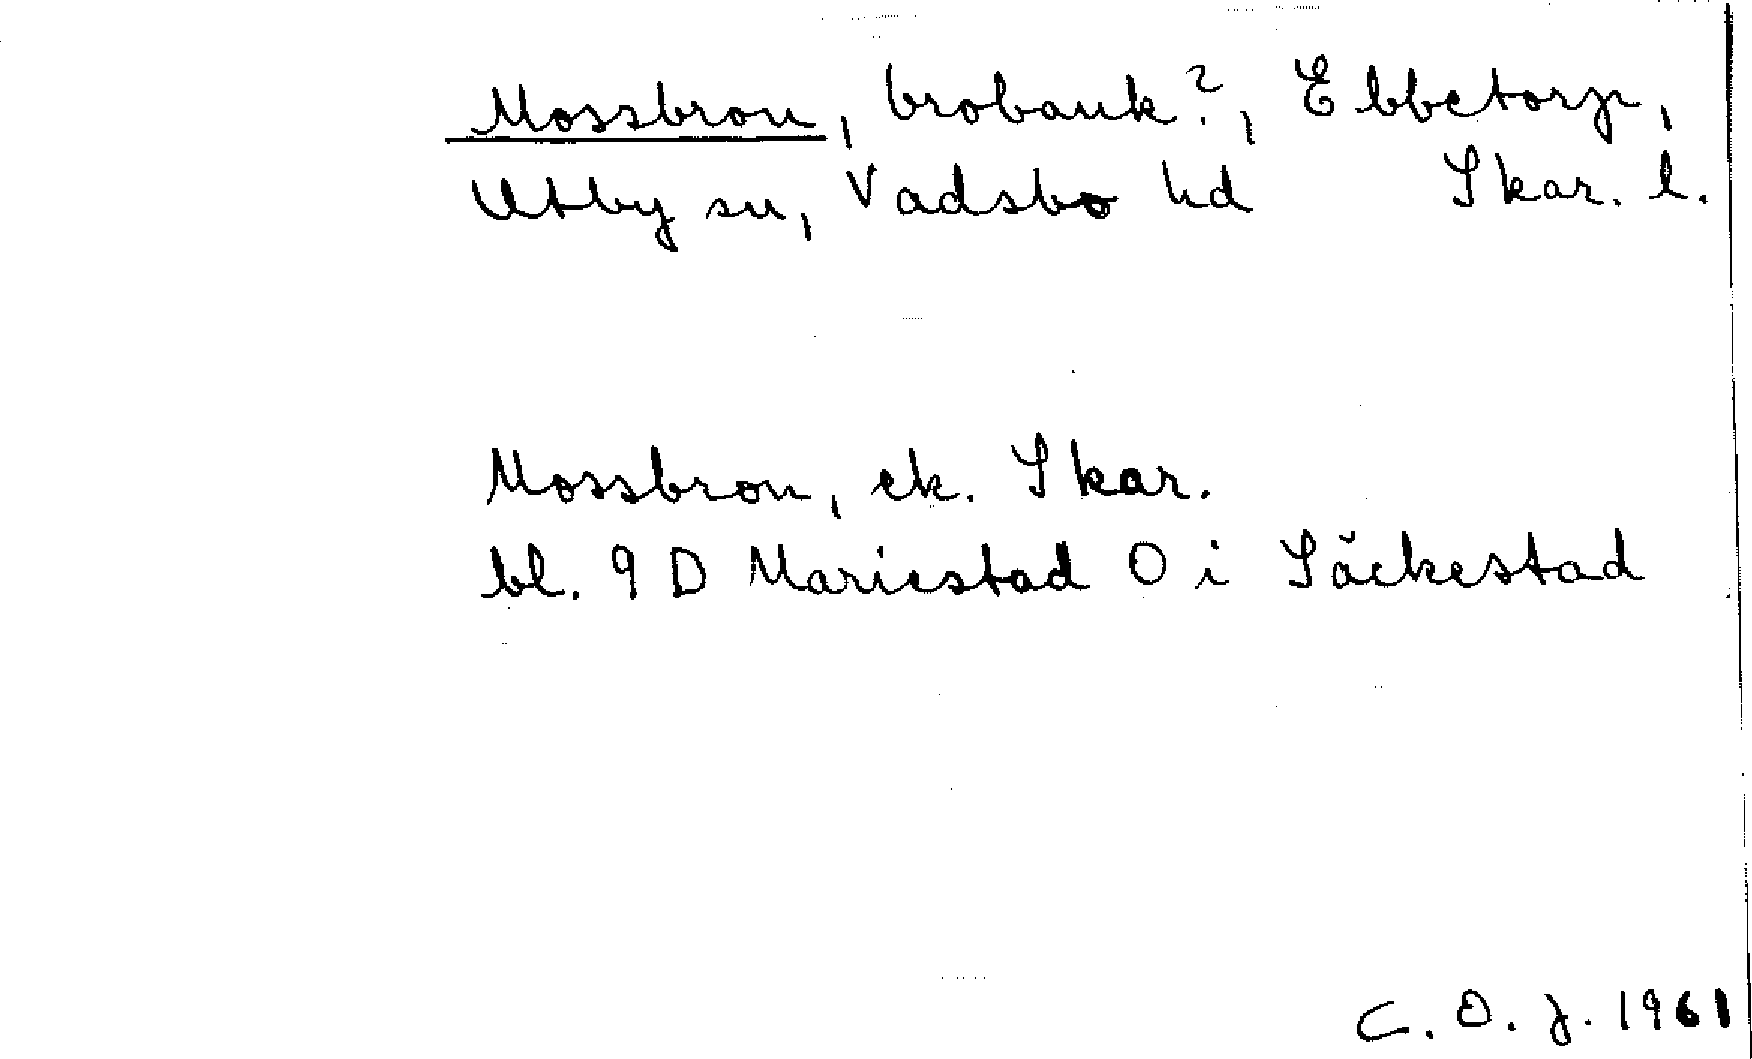 Mossbron, brobank?, Ebbetorp,
Utby sn, Vadsbo hd Skar. l.
Mossbron, ek. Skar.
bl. 9 D Mariestad O i Säckestad
C. O. J. 1961